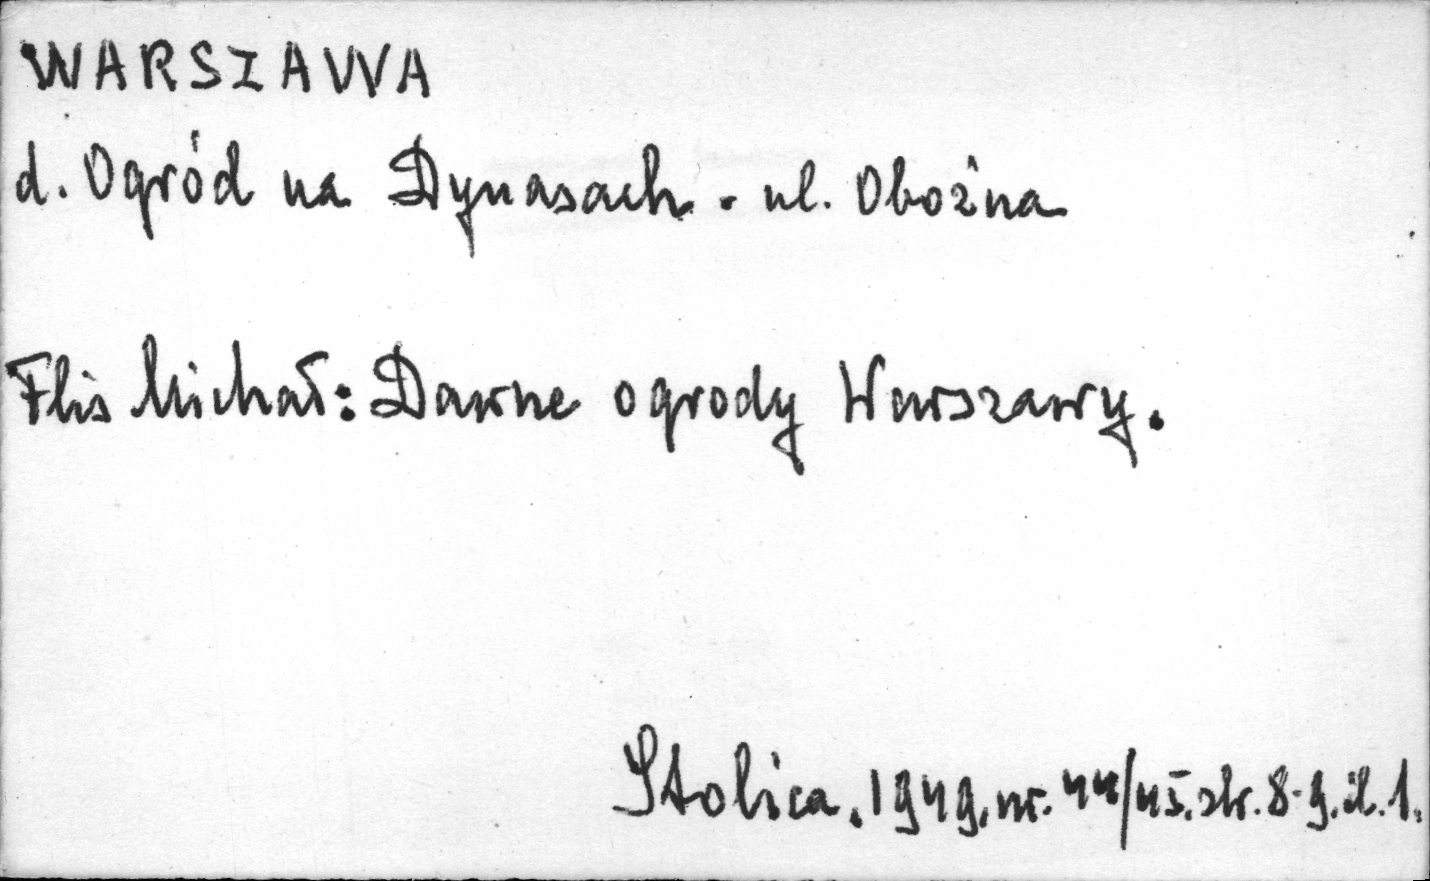 WARSZAWA
d. Ogród na Dynasach - ul. Oboźna
Flis Michał: Dawne ogrody Warszawy.
Stolica. 1949. nr. 44/45. str. 8-9. il. 1.